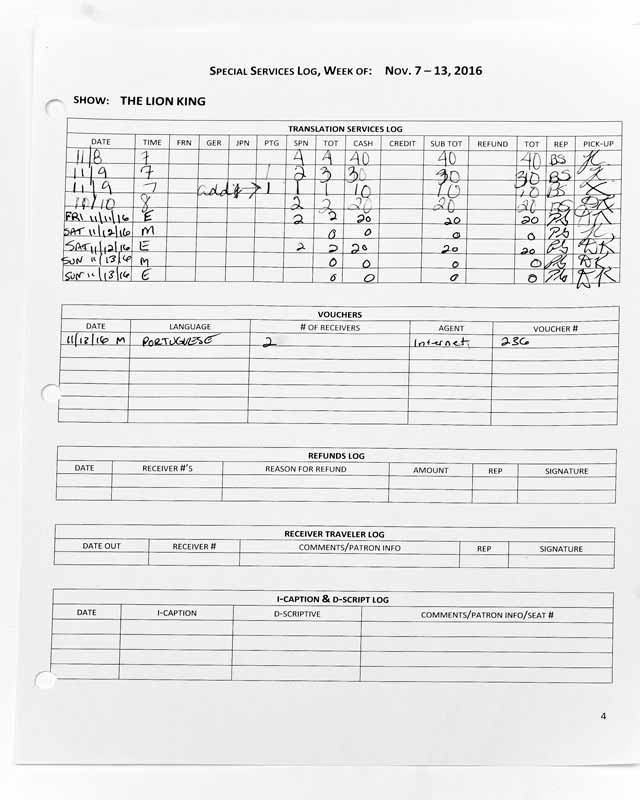 SPECIAL SERVICES LOG, WEEK OF: NOV. 7 – 13, 2016
SHOW: THE LION KING
TRANSLATION SERVICES LOG
DATE TIME FRN GER JPN PTG SPN TOT CASH CREDIT SUB TOT REFUND TOT REP PICK-UP
11/8 7 4 4 40 40 40 BS
11/9 7 1 2 3 30 30 30 BS
11/9 7 add'l → 1 1 1 10 10 10 BS
10/10 8 2 2 20 20 20 BS DR
FRI 11/11/16 E 2 2 20 20 20 Pb DR
SAT 11/12/16 M 0 0 0 0 Pb
SAT 11/12/16 E 2 2 20 20 20 Pb DR
SUN 11/13/16 M 0 0 0 0 Pb DR
SUN 11/13/16 E 0 0 0 0 Pb DR
VOUCHERS
DATE LANGUAGE # OF RECEIVERS AGENT VOUCHER #
11/13/16 M PORTUGUESE 2 Internet 236
REFUNDS LOG
DATE RECEIVER #'S REASON FOR REFUND AMOUNT REP SIGNATURE
RECEIVER TRAVELER LOG
DATE OUT RECEIVER # COMMENTS/PATRON INFO REP SIGNATURE
I-CAPTION & D-SCRIPT LOG
DATE I-CAPTION D-SCRIPTIVE COMMENTS/PATRON INFO/SEAT #
4